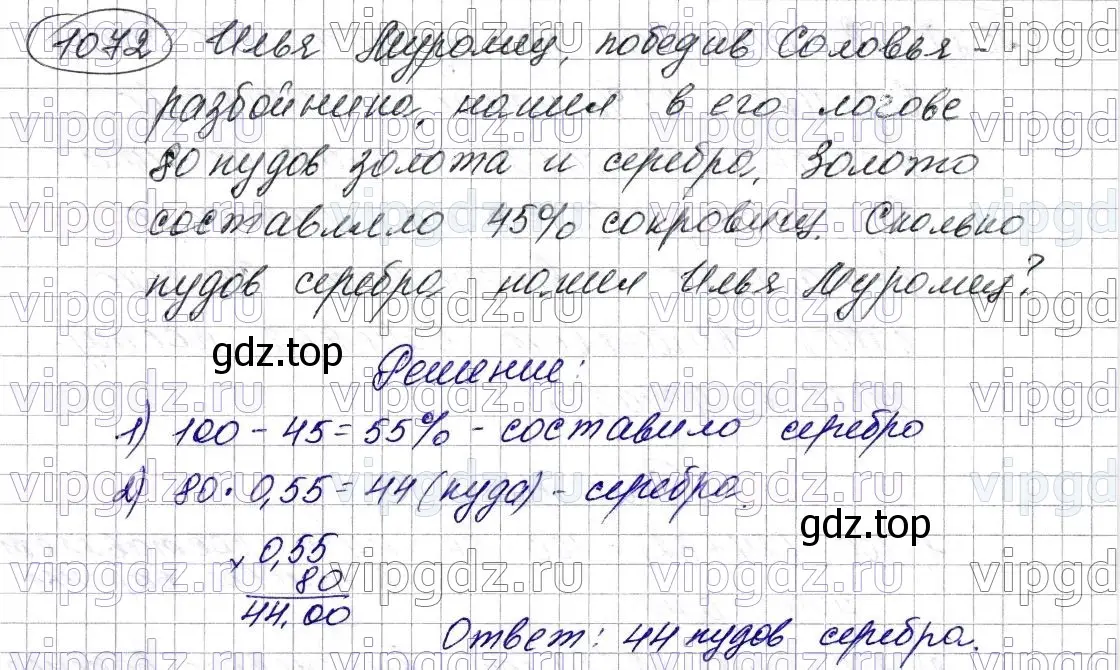 1072 Илья Муромец, победив Соловья-
разбойника, нашел в его логове
80 пудов золота и серебра. Золото
составляло 45% сокровищ. Сколько
пудов серебра нашел Илья Муромец?
gdz.top
Решение:
1) 100 - 45 = 55% - составило серебро
2) 80 · 0,55 = 44 (пуда) - серебра.
gdz.top
× 0,55
80
44,00
Ответ: 44 пудов серебра.
vipgdz.ru